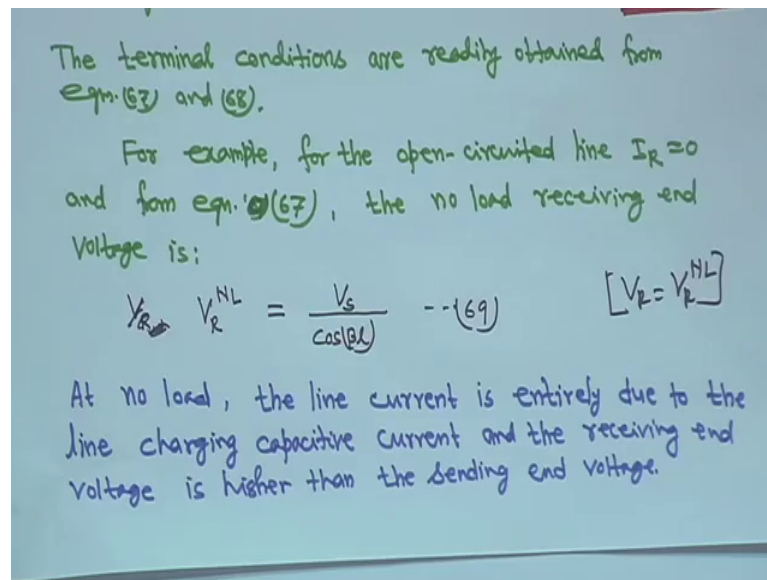 The terminal conditions are readily obtained from
eqn.(67) and (68).
For example, for the open-circuited line I_R = 0
and from eqn. (67), the no load receiving end
Voltage is:
V_R^NL = V_s / cos(βl) --(69) [V_R = V_R^NL]
At no load, the line current is entirely due to the
line charging capacitive current and the receiving end
voltage is higher than the sending end voltage.